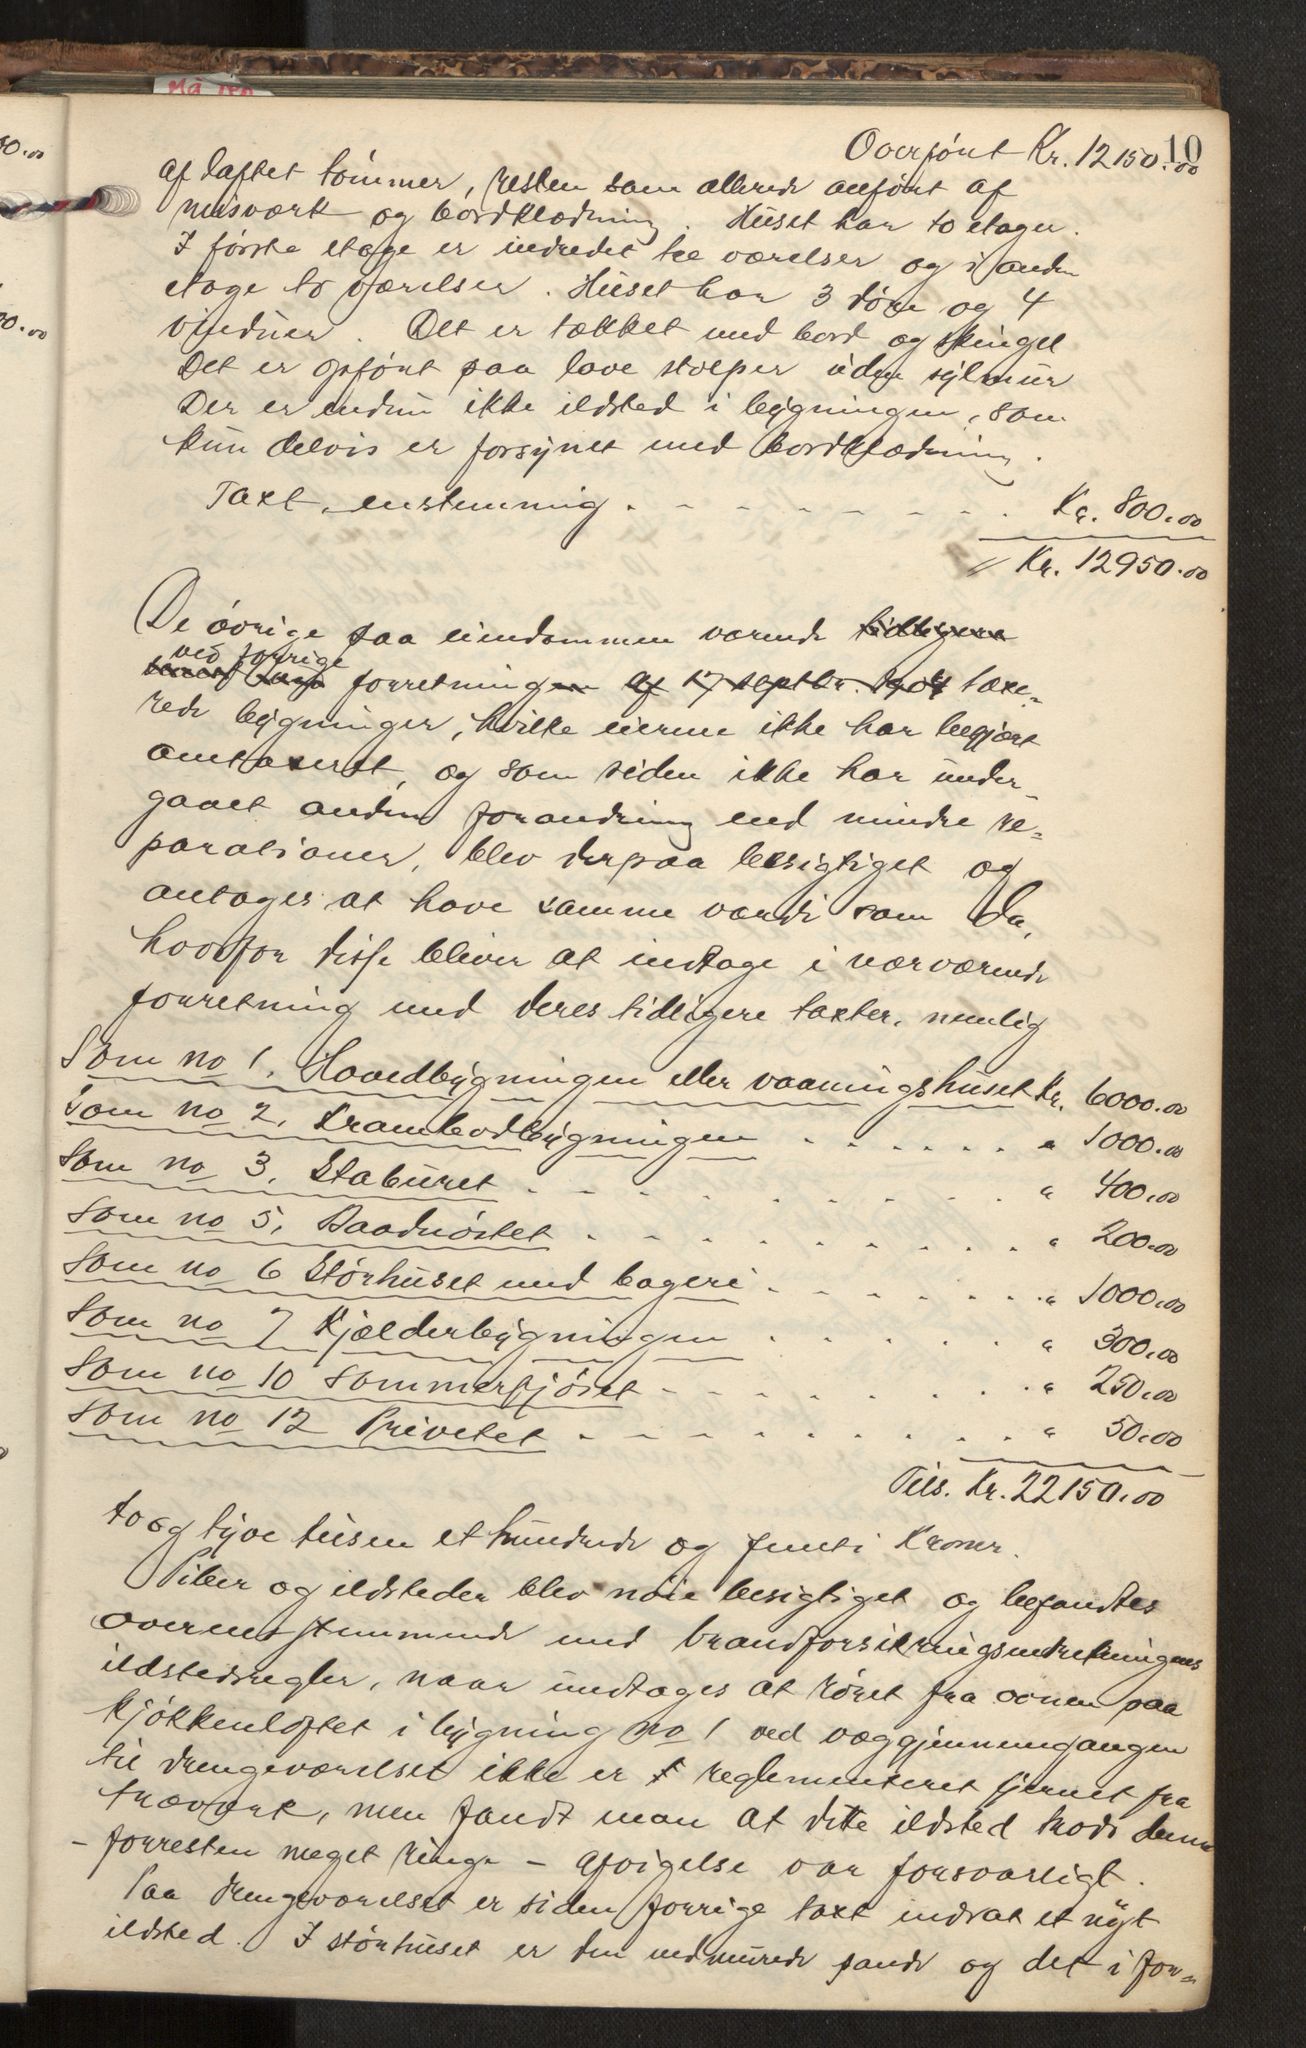 10
Overført Kr. 12150.00
af laftet tømmer, resten som allerede anført af
reisværk og bordklædning. Huset har to etager.
I første etage er indredet tre værelser og i anden
etage to værelser. Huset har 3 døre og 4
vinduer. Det er tækket med bord og skingel
Det er opført paa lave stolper uden sylmur
Der er endnu ikke ildsted i bygningen, som
kun delvis er forsynet med bordklædning.
Taxt, enstemmig . . . . . . . . Kr. 800.00
Kr. 12950.00
De øvrige paa eiendommen værende tidligere
ved forrige
forretningen af 17 septbr. 1904 taxe-
rede bygninger, hvilke eierne ikke har begjært
omtaxeret, og som siden ikke har under-
gaaet anden forandring end mindre re-
parationer, blev derpaa besigtiget og
antages at have samme værdi som da,
hvorfor disse bliver at indtage i nærværende
forretning med deres tidligere taxter, nemlig
Som no 1. Hovedbygningen eller vaaningshuset Kr. 6000.00
Som no 2. Krambodbygningen . . . . . . " 1000.00
Som no 3. Staburet . . . . . . . . . . " 400.00
Som no 5. Baadnøstet . . . . . . . . . " 200.00
Som no 6 Størhuset med bageri . . . . . . . " 1000.00
Som no 7 Kjælderbygningen . . . . . . " 300.00
Som no 10 Sommerfjøset . . . . . . . . . " 250.00
Som no 12 Privetet . . . . . . . . . . " 50.00
Tils. Kr. 22150.00
to og tyve tusen et hundrede og femti Kroner.
Piber og ildsteder blev nøie besigtiget og befandtes
overensstemmende med brandforsikringsindretningens
ildstedsregler, naar undtages at røret fra ovnen paa
kjøkkenloftet i bygning no 1 ved væggjennemgangen
til drengeværelset ikke er reglementeret fjernet fra
træværk, men fandt man at dette ildsted trods denne
- forresten meget ringe - afvigelse var forsvarligt.
Paa drengeværelset er siden forrige taxt indsat et nyt
ildsted. I størhuset er den indmurede pande og det i for-